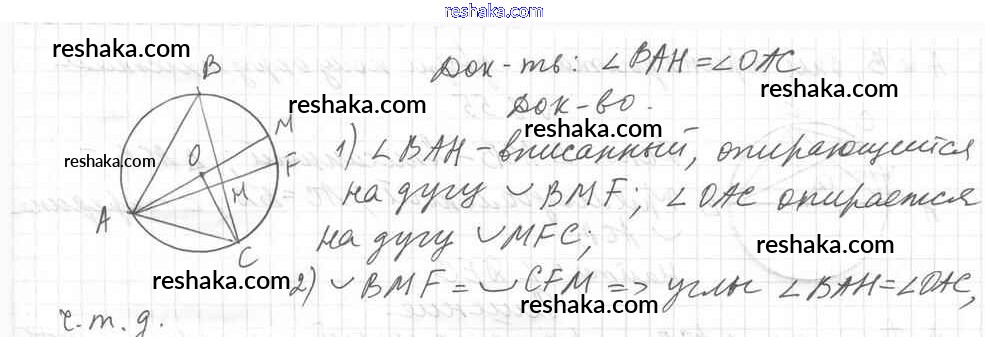 reshaka.com
reshaka.com
B
Док-ть: ∠BAH=∠OAC
reshaka.com
reshaka.com
Док-во.
M
reshaka.com
O
F
reshaka.com
1) ∠BAH-вписанный, опирающийся
H
на дугу ◡BMF; ∠OAC опирается
A
C
на дугу ◡MFC;
reshaka.com
reshaka.com
2) ◡BMF=◡CFM => углы ∠BAH=∠OAC,
reshaka.com
ч.т.д.